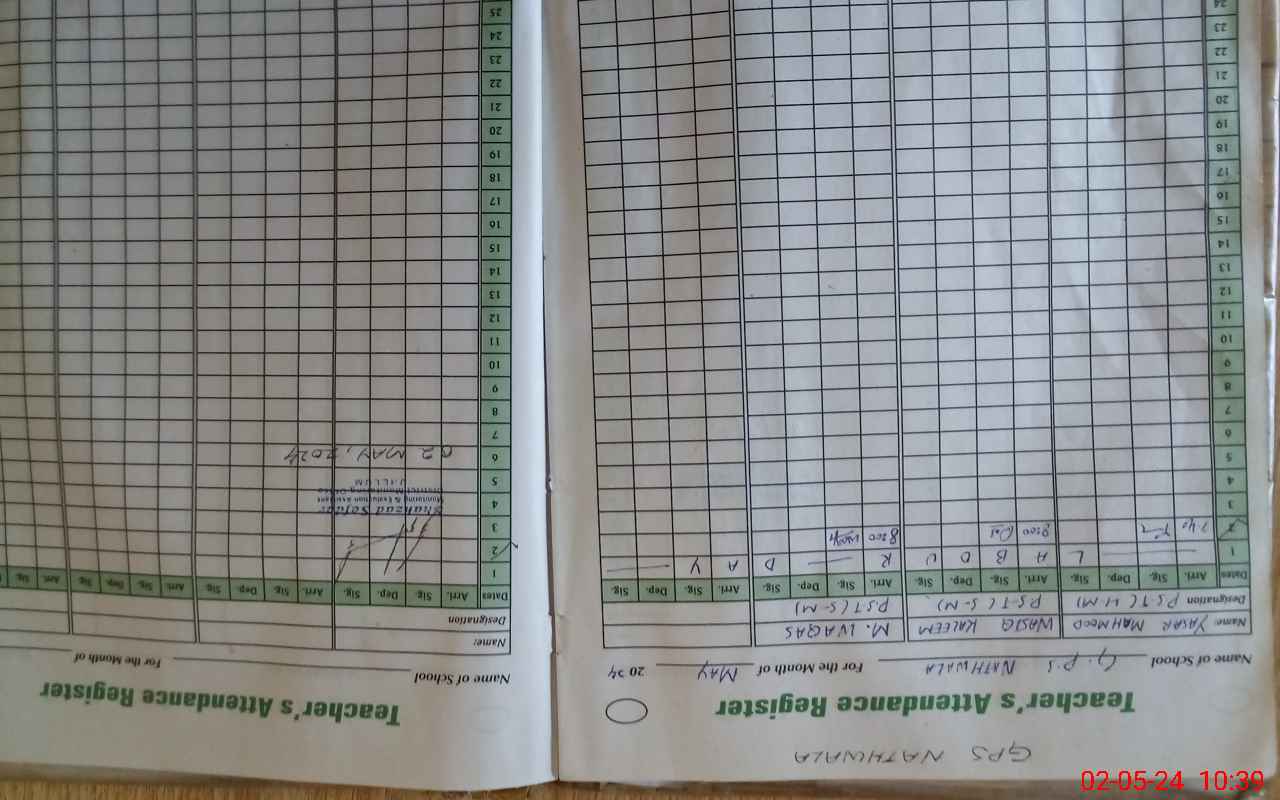 GPS NATHWALA
Teacher's Attendance Register
Name of School G.P.S NATHWALA For the Month of MAY 2024
Name: YASAR MAHMOOD WASIQ KALEEM M. WAQAS
Designation P.S.T (H.M) P.S.T (S.M) P.S.T (S.M)
Dates Arri. Sig. Dep. Sig. Arri. Sig. Dep. Sig. Arri. Sig. Dep. Sig. Arri. Sig. Dep. Sig.
1 L A B O U R D A Y
2 7:40 8:00 8:00
3
4
5
6
7
8
9
10
11
12
13
14
15
16
17
18
19
20
21
22
23
24
Teacher's Attendance Register
Name of School For the Month of
Name:
Designation
Dates Arri. Sig. Dep. Sig. Arri. Sig. Dep. Sig. Arri. Sig. Dep. Sig. Arri. Sig.
1
2
3
4
5
6
7
8
9
10
11
12
13
14
15
16
17
18
19
20
21
22
23
24
25
Shahzad Safdar
Monitoring & Evaluation Assistant
District Monitoring Office
JHELUM
02 MAY, 2024
02-05-24 10:39